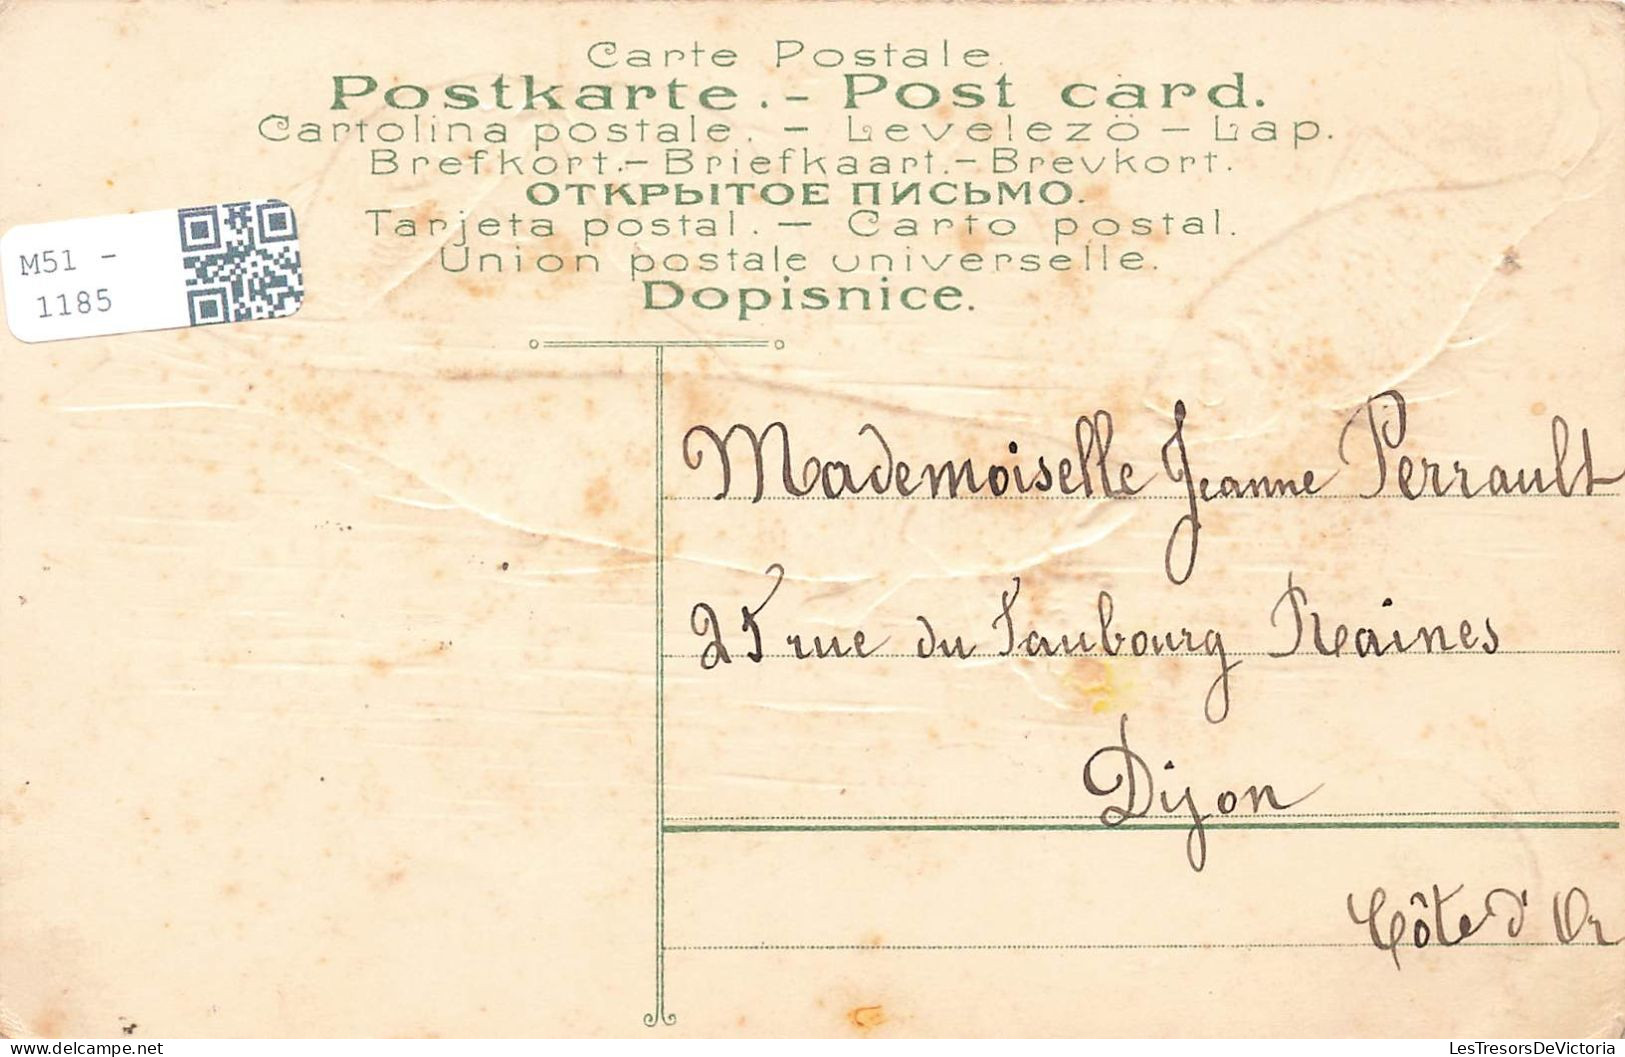 Carte Postale.
Postkarte. - Post card.
Cartolina postale. - Levelezö - Lap.
Brefkort. - Briefkaart. - Brevkort.
ОТКРЫТОЕ ПИСЬМО.
Tarjeta postal. - Carto postal.
Union postale universelle.
Dopisnice.
M51 -
1185
Mademoiselle Jeanne Perrault
25 rue du Faubourg Raines
Dijon
Côte d'Or
LesTresorsDeVictoria